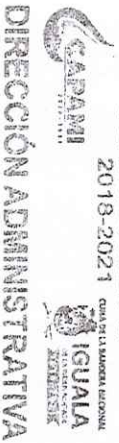 CAPAMI
2018-2021
CUNA DE LA BANDERA NACIONAL
IGUALA
DIRECCIÓN ADMINISTRATIVA